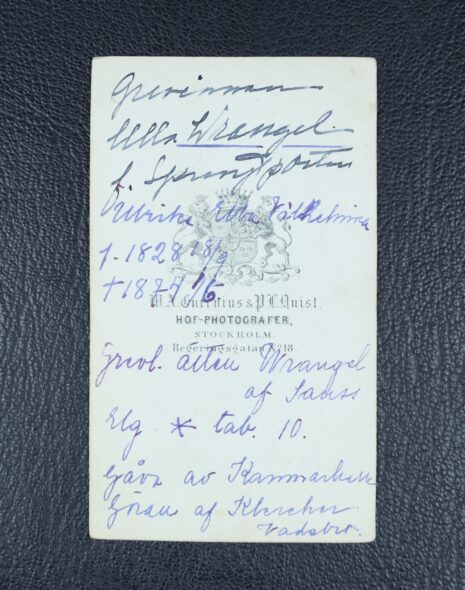 Grevinnan
Ulla Wrangel
f. Sprengtporten
Ulrika Ebba Vilhelmina
f. 1828 18/
† 187 1/6.
W.A. Eurenius & P.L. Quist
HOF-PHOTOGRAFER,
STOCKHOLM.
Regeringsgatan N:18
Grevl. ätten Wrangel
af Sauss
Elg * tab. 10.
Gåva av Kammarherre
Göran af Klercker
Vadsbro.